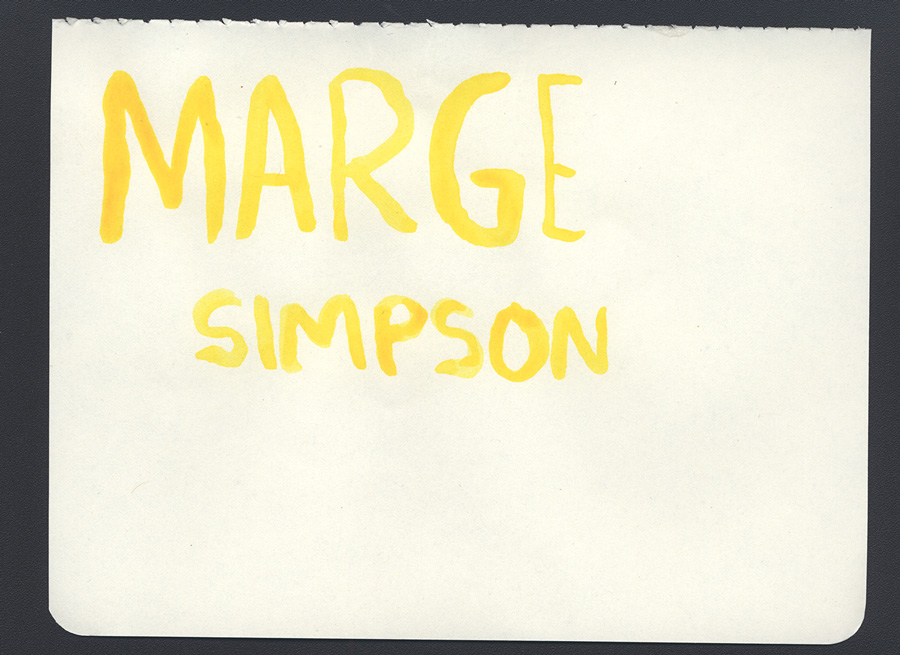 MARGE
SIMPSON